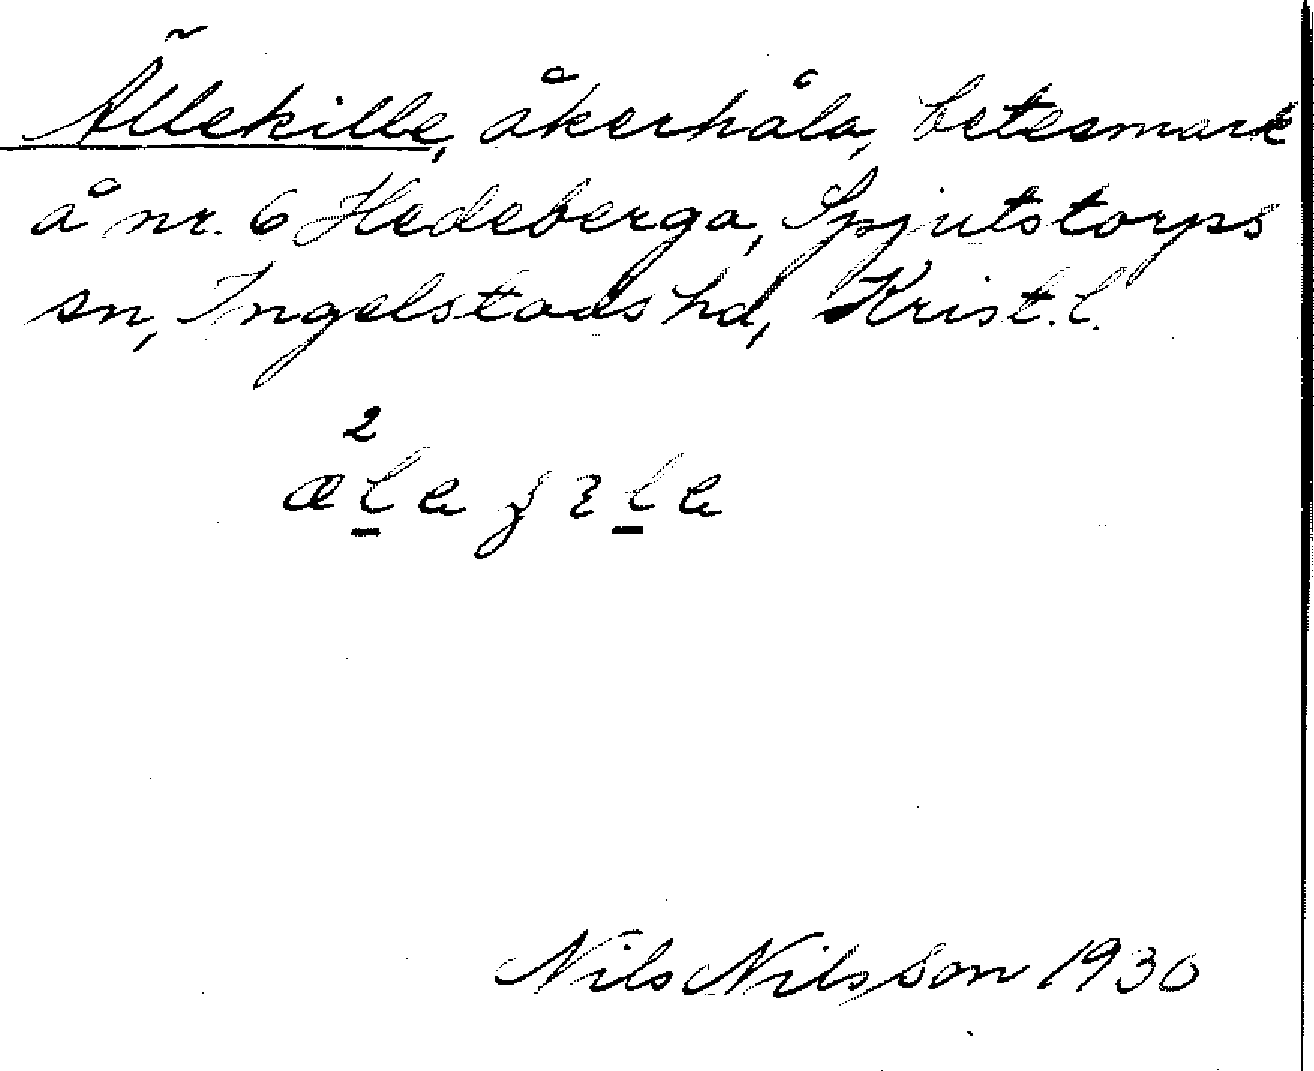 Ällekille, åkerhåla, betesmark
å nr. 6 Hedeberga, Spjutstorps
sn, Ingelstads hd, Krist. l.
2
Nils Nilsson 1930